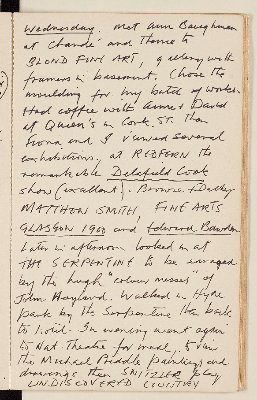 Wednesday. Met Ann Baughman
at Chandé and thence to
BLOND FINE ART, a gallery with
framers in basement. Chose the
moulding for my batch of works.
Had coffee with Anne & David
at Queen's in Cork St. Then
Fiona and I viewed several
exhibitions, at REDFERN the
remarkable Delafield Cook
show (excellent). Browse & Darby
MATTHEW SMITH, FINE ARTS
GLASGOW 1900 and Edward Bawden
Later in afternoon looked in at
THE SERPENTINE to be enraged
by the huge "colour messes" of
John Hoyland. Walked in Hyde
park by the Serpentine then back
to hotel. In evening went again
to Nat. Theatre for meal, to view
the Michael Praddle paintings and
drawings then SNITZLER play
UNDISCOVERED COUNTRY